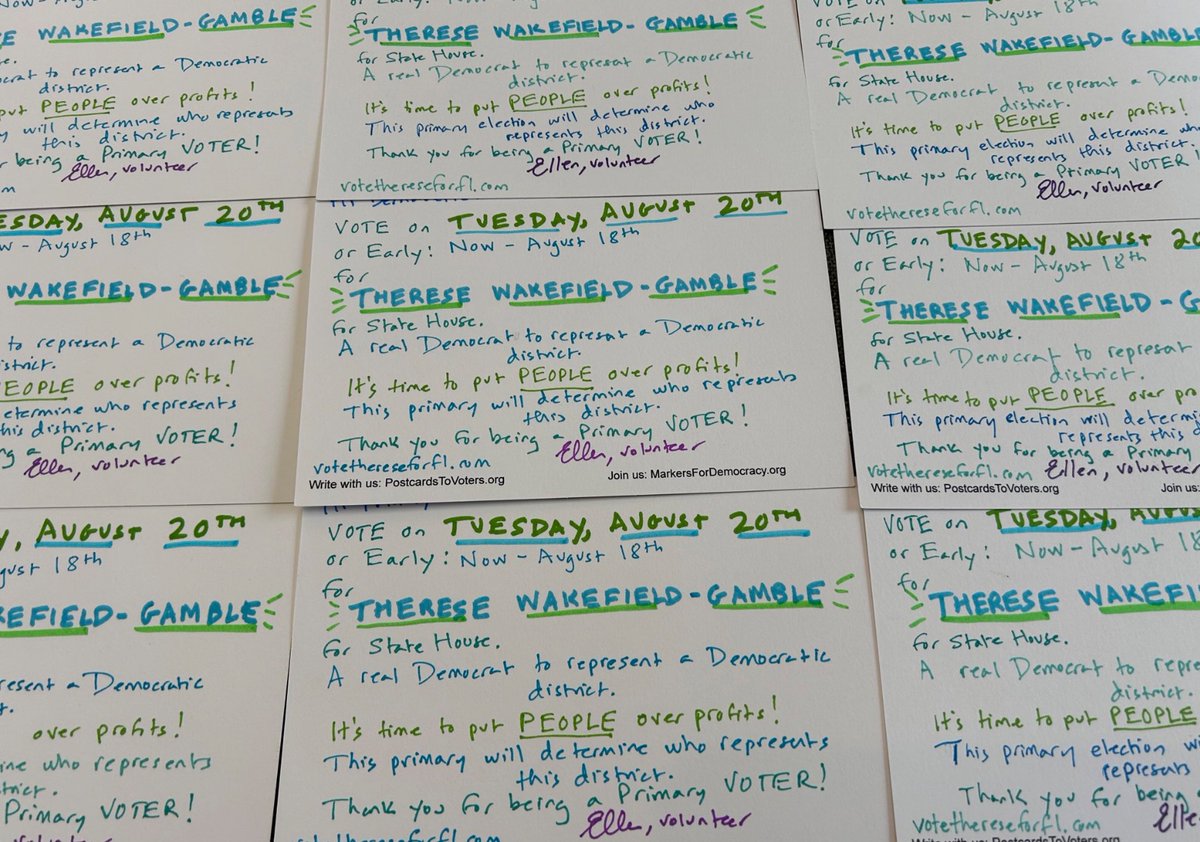 WAKEFIELD-GAMBLE
ocrat to represent a Democratic
district.
put PEOPLE over profits!
will determine who represents
this district.
being a Primary VOTER!
Ellen, volunteer
or Early: Now - August 18th
for
THERESE WAKEFIELD-GAMBLE
for State House.
A real Democrat to represent a Democratic
district.
It's time to put PEOPLE over profits!
This primary election will determine who
represents this district.
Thank you for being a Primary VOTER!
Ellen, volunteer
votethereseforfl.com
VOTE on
or Early: Now - August 18th
for
THERESE WAKEFIELD-GAMBLE
for State House.
A real Democrat to represent a Democ
district.
It's time to put PEOPLE over profits!
This primary election will determine
represents this district.
Thank you for being a Primary VOTER!
Ellen, volunteer
votethereseforfl.com
ESDAY, AUGUST 20TH
ow - August 18th
WAKEFIELD-GAMBLE
to represent a Democratic
istrict.
PEOPLE over profits!
etermine who represents
this district.
ng a Primary VOTER!
Ellen, volunteer
VOTE on TUESDAY, AUGUST 20TH
or Early: Now - August 18th
for
THERESE WAKEFIELD-GAMBLE
for State House.
A real Democrat to represent a Democratic
district.
It's time to put PEOPLE over profits!
This primary will determine who represents
this district.
Thank you for being a Primary VOTER!
Ellen, volunteer
votethereseforfl.com
Write with us: PostcardsToVoters.org
Join us: MarkersForDemocracy.org
VOTE on TUESDAY, AUGUST 20
or Early: Now - August 18th
for
THERESE WAKEFIELD-G
for State House.
A real Democrat to represent
district.
It's time to put PEOPLE over pro
This primary election will determi
represents this d
Thank you for being a Primary
votethereseforfl.com Ellen, volunteer
Write with us: PostcardsToVoters.org
Join us:
Y, AUGUST 20TH
gust 18th
KEFIELD-GAMBLE
resent a Democratic
over profits!
ine who represents
trict.
Primary VOTER!
VOTE on TUESDAY, AUGUST 20TH
or Early: Now - August 18th
for
THERESE WAKEFIELD-GAMBLE
for State House.
A real Democrat to represent a Democratic
district.
It's time to put PEOPLE over profits!
This primary will determine who represents
this district.
Thank you for being a Primary VOTER!
Ellen, volunteer
VOTE on TUESDAY, AUGU
or Early: Now - August 18
for
THERESE WAKEFI
for State House.
A real Democrat to repre
district.
It's time to put PEOPLE
This primary election wi
represents
Thank you for being
votethereseforfl.com Elle